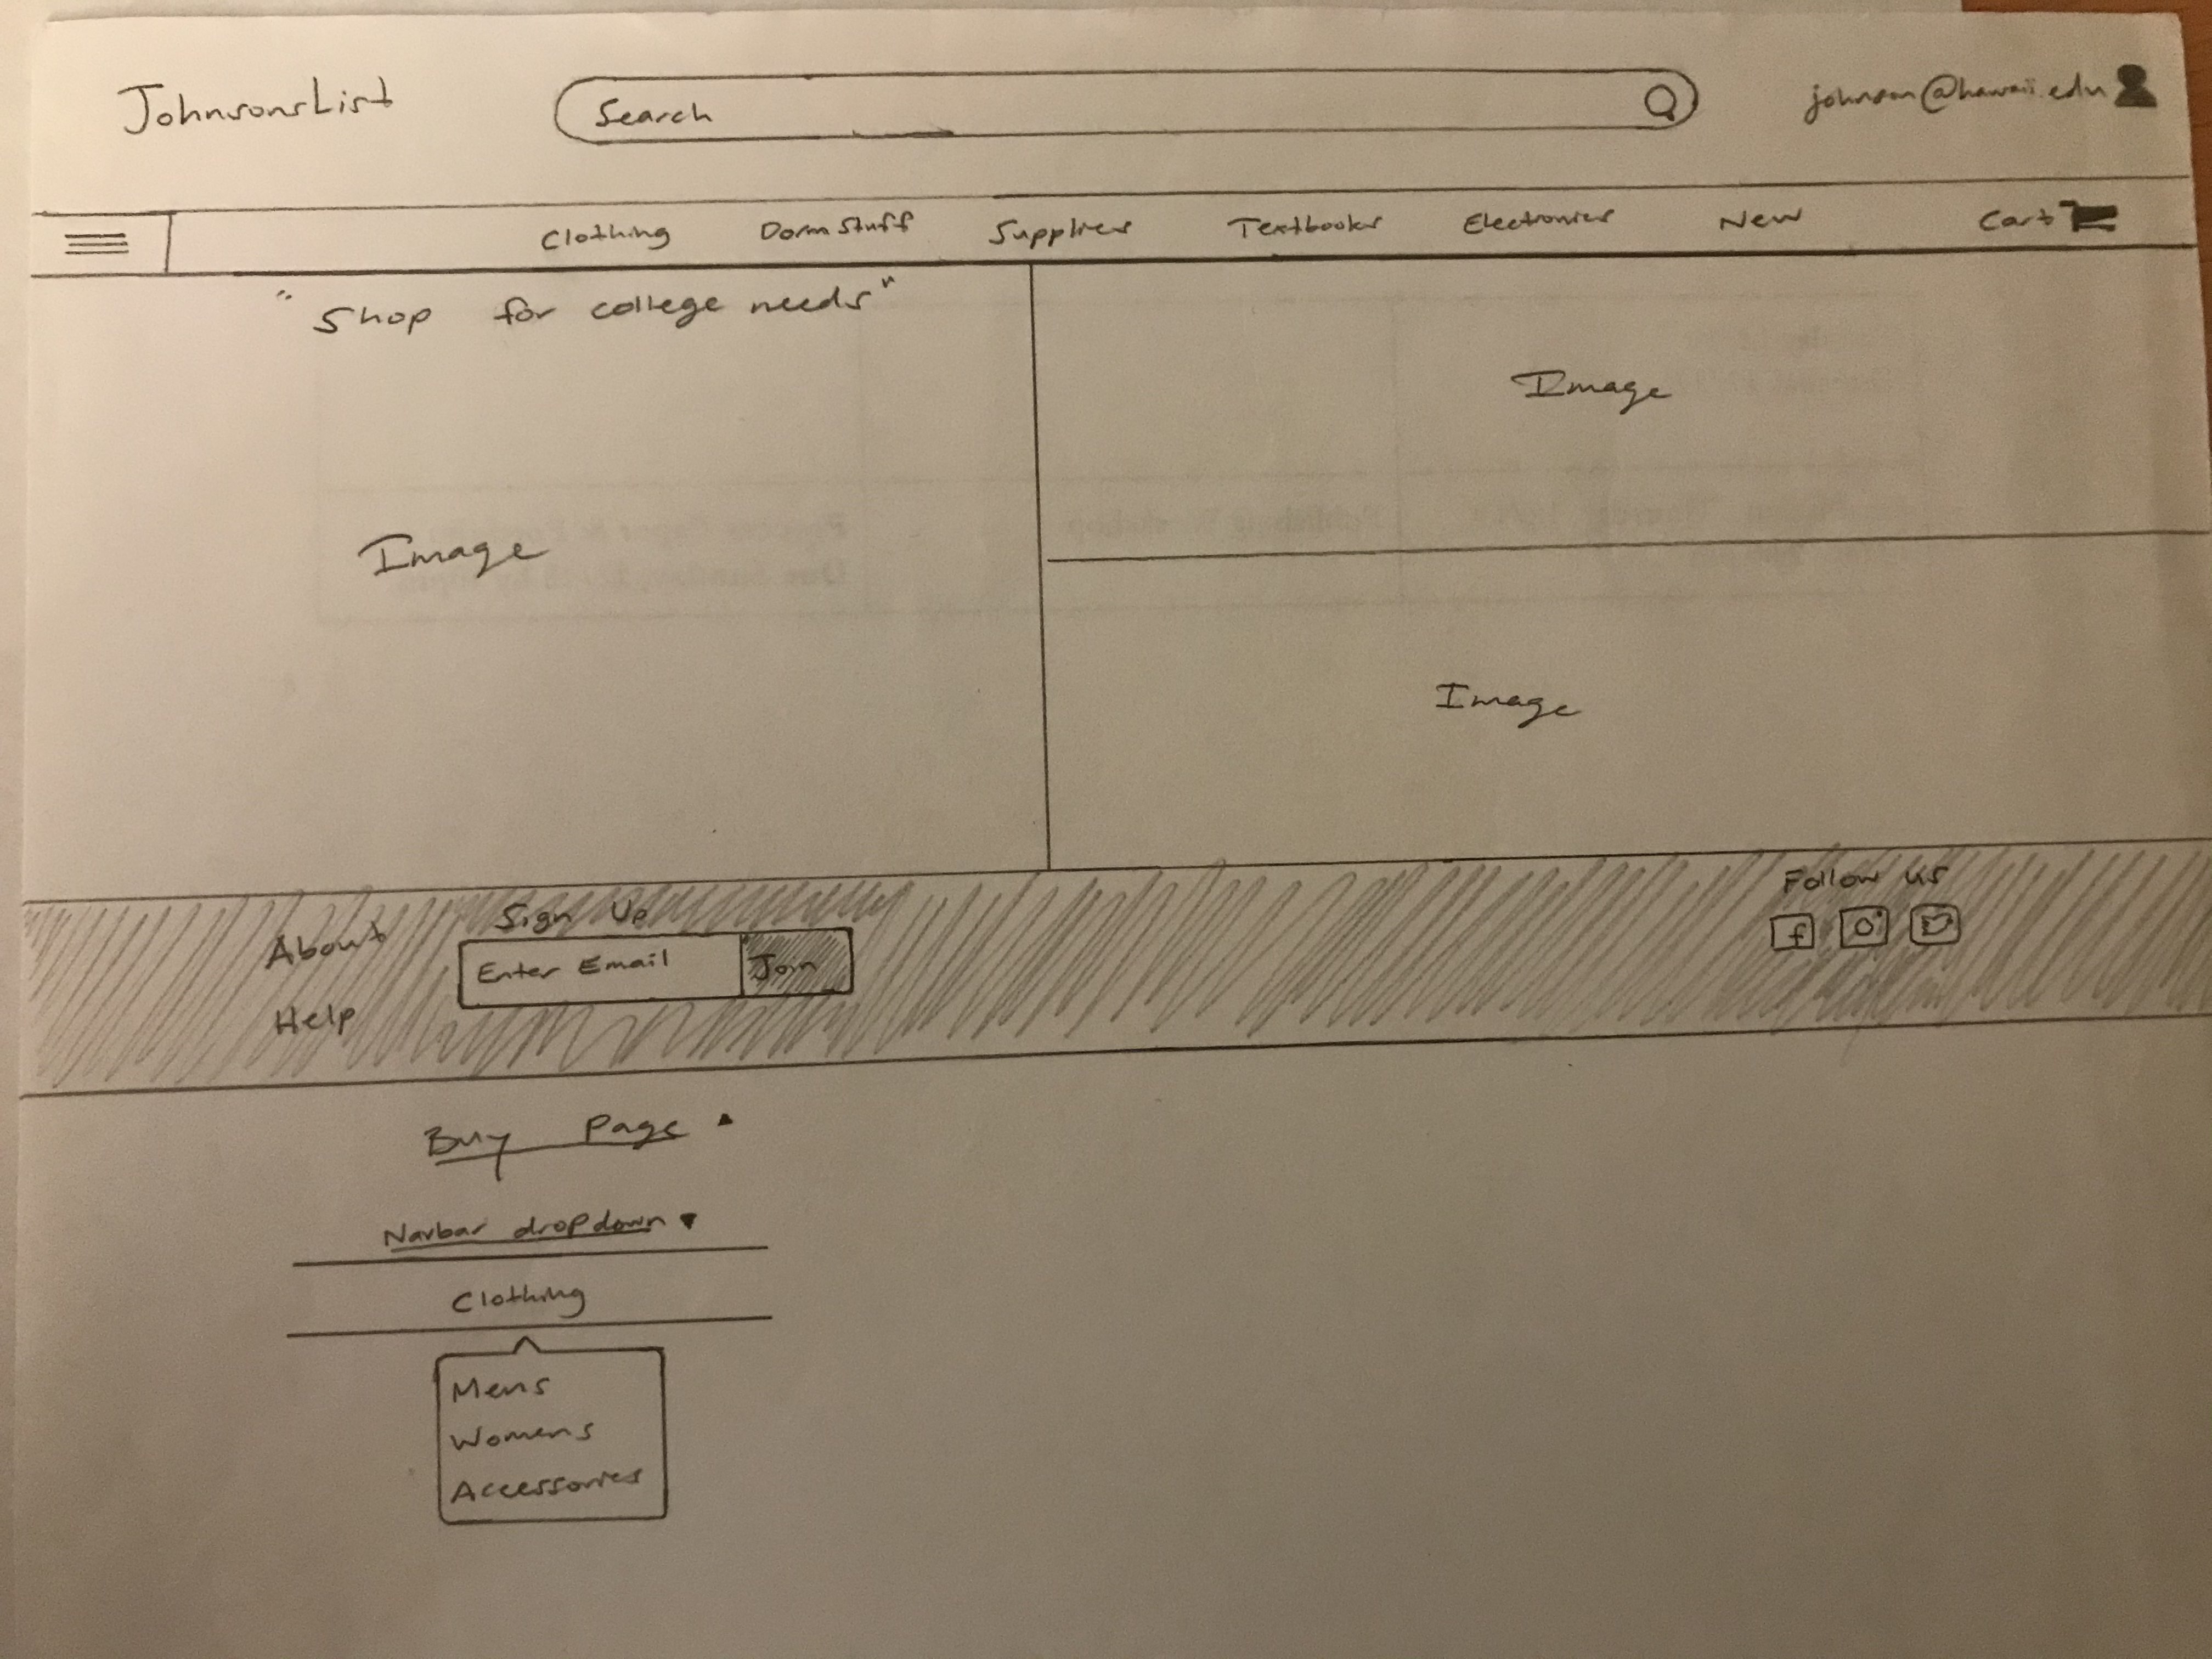 JohnsonsList
Search
johnson@hawaii.edu
Clothing Dorm Stuff Supplies Textbooks Electronics New Cart
"Shop for college needs"
Image
Image
Image
About
Help
Sign Up
Enter Email Join
Follow us
Buy Page
Navbar dropdown
Clothing
Mens
Womens
Accessories